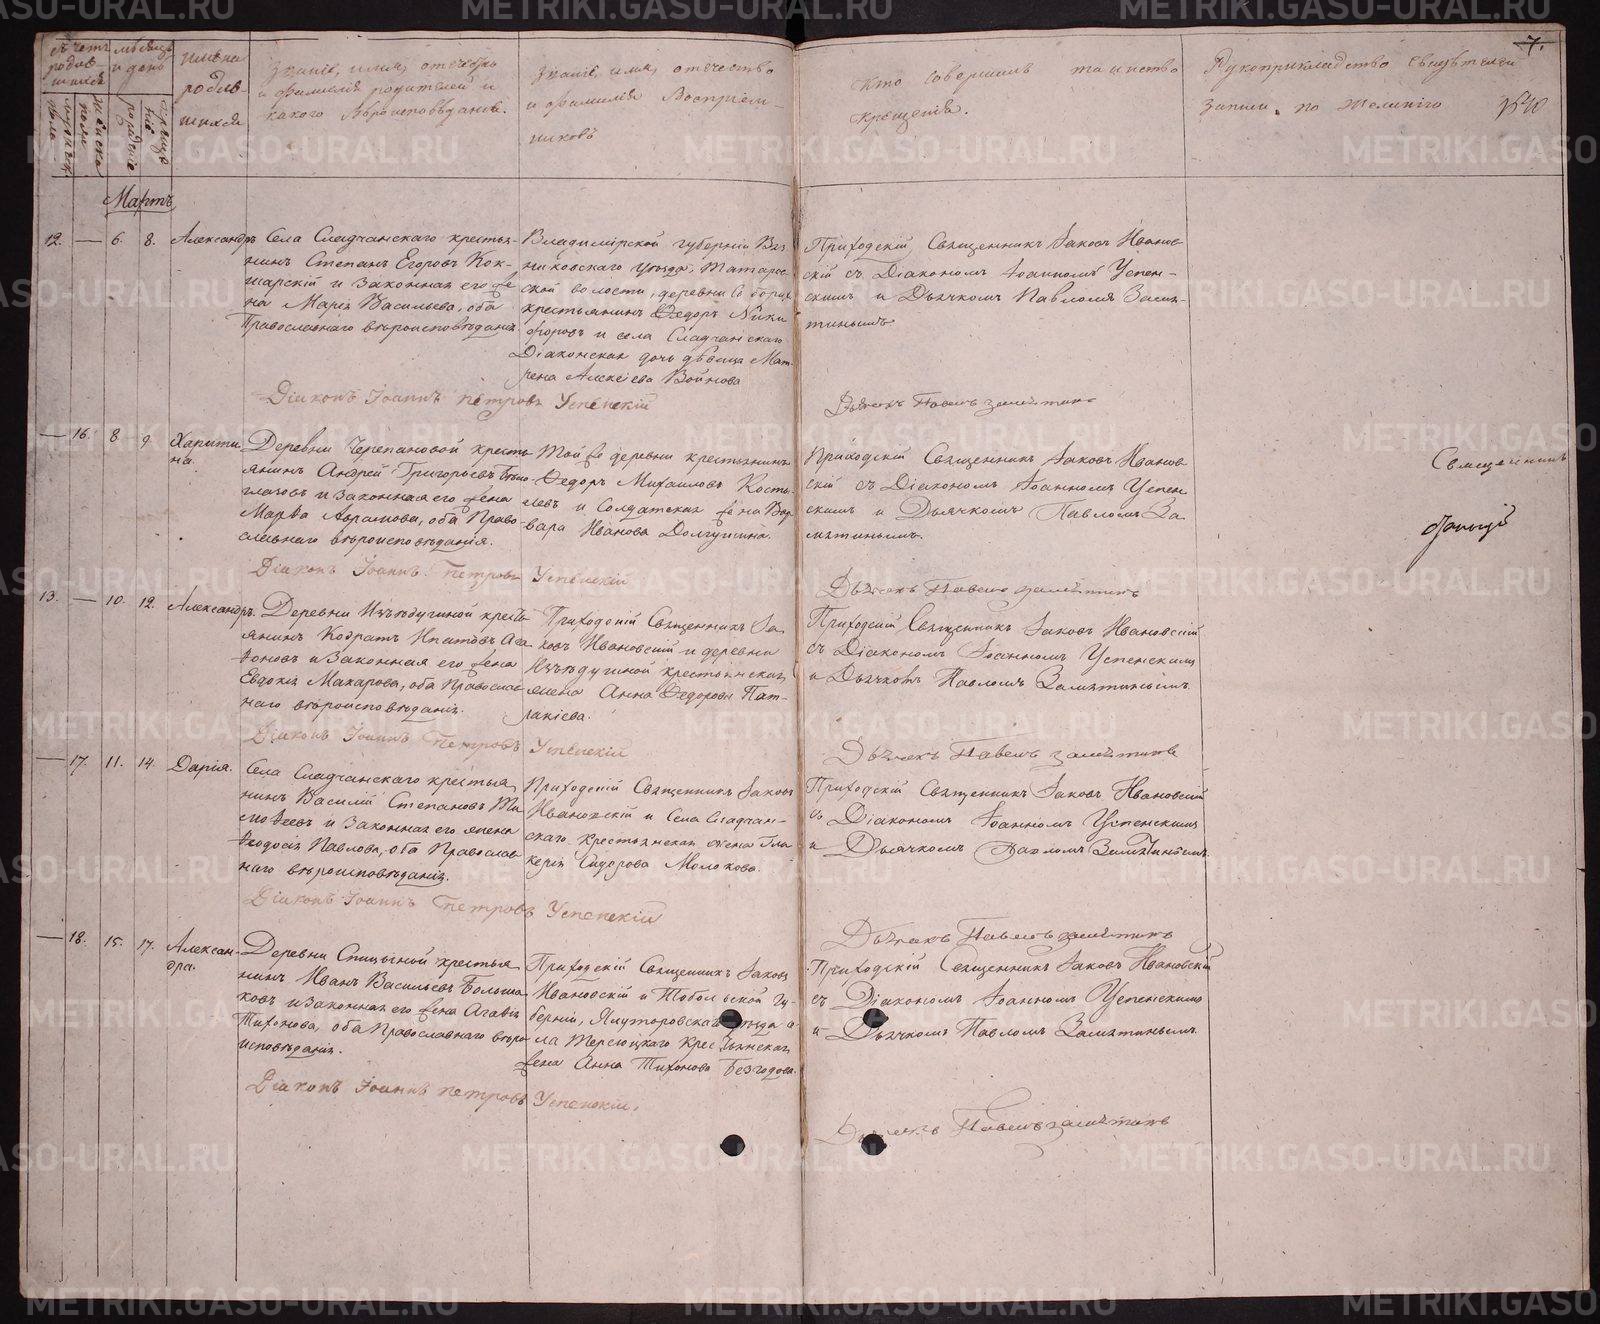 счетъ родив-шихся
мѣсяцъ и день
имена родив-шихся
Званіе, имя, отечество и фамилія родителей и какого Вѣроисповѣданія.
Званіе, имя, отечество и фамилія Воспріем-никовъ
Кто совершалъ таинство крещенія.
Рукоприкладство свидѣтелей записи по желанію
7.
Мартъ
12. — 6. 8. Александръ
Села Сладчанскаго крестья-
нинъ Степанъ Егоровъ Кок-
шарскій и законная его же-
на Марія Васильева, оба
Православнаго вѣроисповѣданія.
Владимірской губерніи Вяз-
никовскаго уѣзда, Татаров-
ской волости, деревни
крестьянинъ Ѳедоръ Ники
форовъ и села Сладчанскаго
Діаконская дочь дѣвица Мат-
рена Алексіева Войнова
Приходскій Священникъ Іаковъ Иванов-
скій съ Діакономъ Іоанномъ Успен-
скимъ и Дьячкомъ Павломъ Замя-
тинымъ
Діаконъ Іоаннъ Петровъ Успенскій
Дьячекъ Павелъ Замятинъ
— 16. 8. 9. Харити-
на.
Деревни Черепановой кресть
янинъ Андрей Григорьевъ Бѣло-
глазовъ и законная его жена
Марѳа Аврамова, оба Право-
славнаго вѣроисповѣданія.
Той же деревни крестьянинъ
Ѳедоръ Михаиловъ Косты-
левъ и Солдатская жена Вар-
вара Иванова Долгушина.
Приходскій Священникъ Іаковъ Иванов-
скій съ Діакономъ Іоанномъ Успен
скимъ и Дьячкомъ Павломъ За
мятинымъ.
Священникъ
Діаконъ Іоаннъ Петровъ Успенскій
Дьячекъ Павелъ Замятинъ
13. — 10. 12. Александръ.
Деревни Изъѣдугиной кресть
янинъ Кодратъ Ипатовъ Ага-
ѳоновъ и законная его жена
Евдокія Макарова, оба Православ
наго вѣроисповѣданія.
Приходскій Священникъ Іа
ковъ Ивановскій и деревни
Изъѣдугиной крестьянская
жена Анна Ѳедорова Пат-
ракіева.
Приходскій Священникъ Іаковъ Ивановскій
съ Діакономъ Іоанномъ Успенскимъ
и Дьячкомъ Павломъ Замятинымъ.
Діаконъ Іоаннъ Петровъ Успенскій
Дьячекъ Павелъ Замятинъ
— 17. 11. 14. Дарія.
Села Сладчанскаго крестья
нинъ Василій Степановъ Ти
моѳеевъ и законная его жена
Ѳеодосія Павлова, оба Православ
наго вѣроисповѣданія.
Приходскій Священникъ Іаковъ
Ивановскій и Села Сладчан-
скаго крестьянская жена Гли
керія Сидорова Молокова.
Приходскій Священникъ Іаковъ Ивановскій
съ Діакономъ Іоанномъ Успенскимъ
и Дьячкомъ Павломъ Замятинымъ.
Діаконъ Іоаннъ Петровъ Успенскій
Дьячекъ Павелъ Замятинъ
— 18. 15. 17. Алексан-
дра.
Деревни Спицыной крестья
нинъ Иванъ Васильевъ Больша
ковъ и законная его жена Агаѳія
Тихонова, оба Православнаго вѣро
исповѣданія.
Приходскій Священникъ Іаковъ
Ивановскій и Тобольской Гу-
берніи, Ялуторовскаго уѣзда се-
ла Терсюцкаго Крестьянская
жена Анна Тихонова Безгодова.
Приходскій Священникъ Іаковъ Ивановскій
съ Діакономъ Іоанномъ Успенскимъ
и Дьячкомъ Павломъ Замятинымъ.
Діаконъ Іоаннъ Петровъ Успенскій.
Дьячекъ Павелъ Замятинъ
METRIKI.GASO-URAL.RU